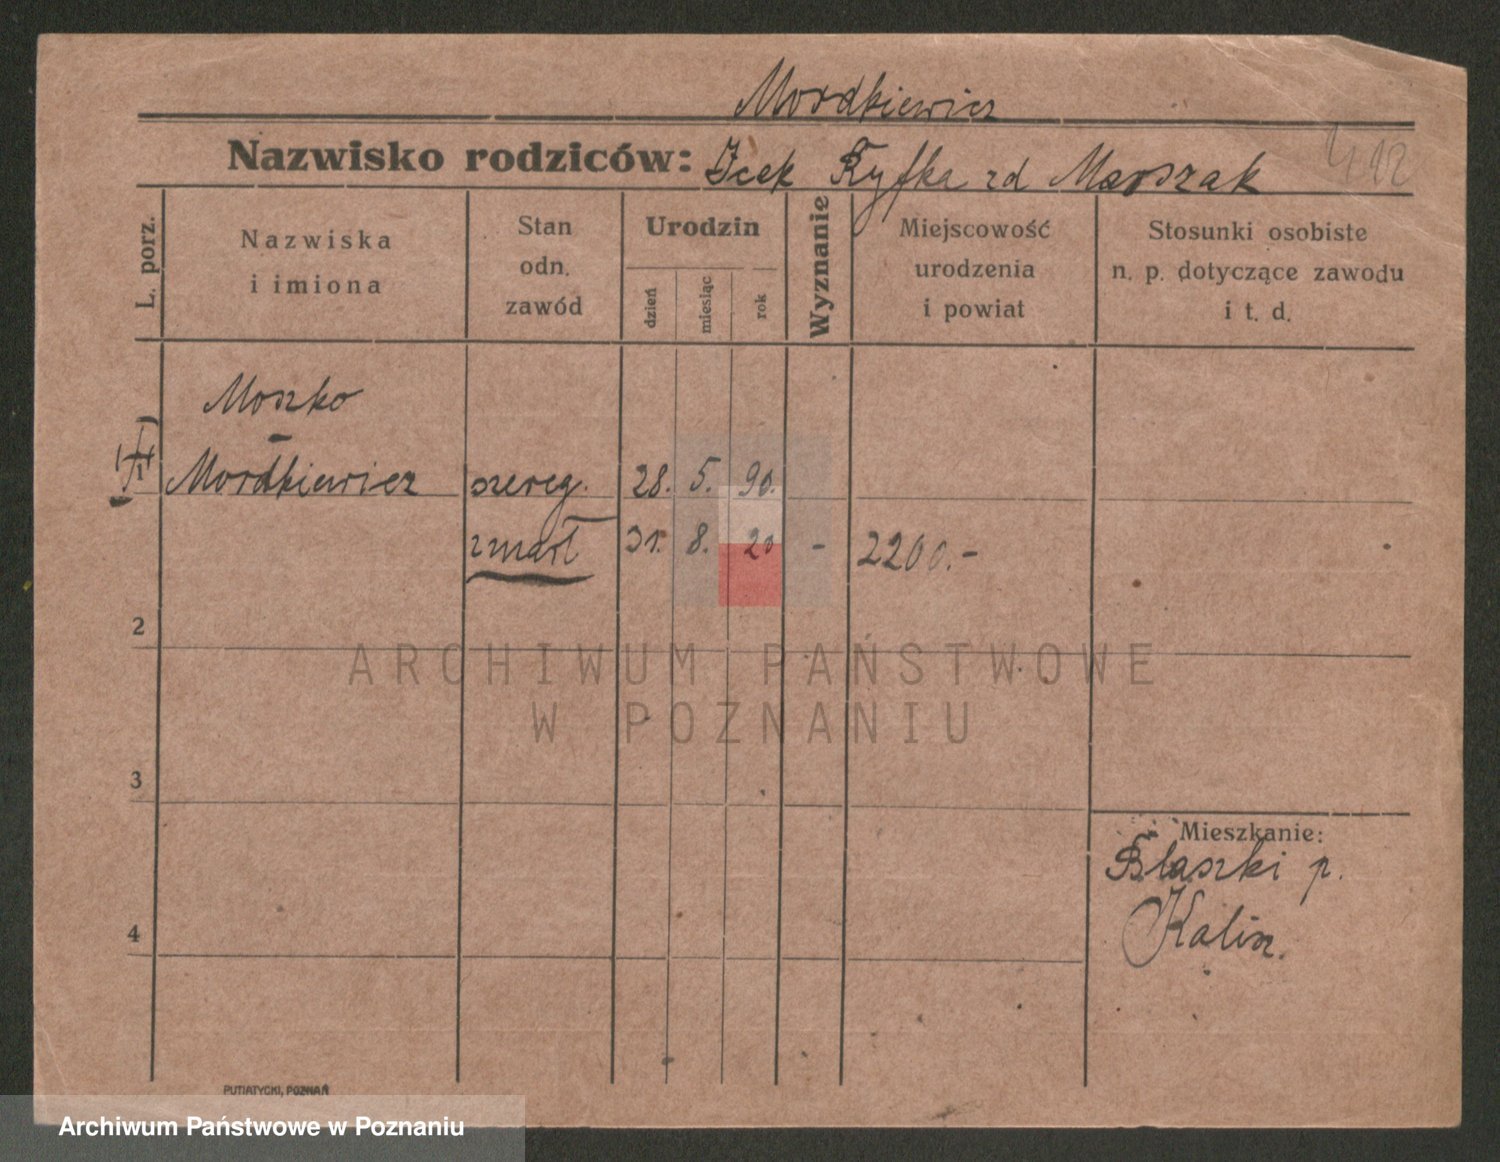 Mordkiewicz
Nazwisko rodziców: Icek Ryfka zd Marszak
412
L. porz.
Nazwiska
i imiona
Stan
odn.
zawód
Urodzin
dzień
miesiąc
rok
Wyznanie
Miejscowość
urodzenia
i powiat
Stosunki osobiste
n. p. dotyczące zawodu
i t. d.
Moszko
Mordkiewicz szereg. 28. 5. 90.
zmarł 31. 8. 20 - 2200.-
2
ARCHIWUM PAŃSTWOWE
W POZNANIU
3
Mieszkanie:
Błaszki p.
Kalisz.
4
PUTIATYCKI, POZNAŃ
Archiwum Państwowe w Poznaniu